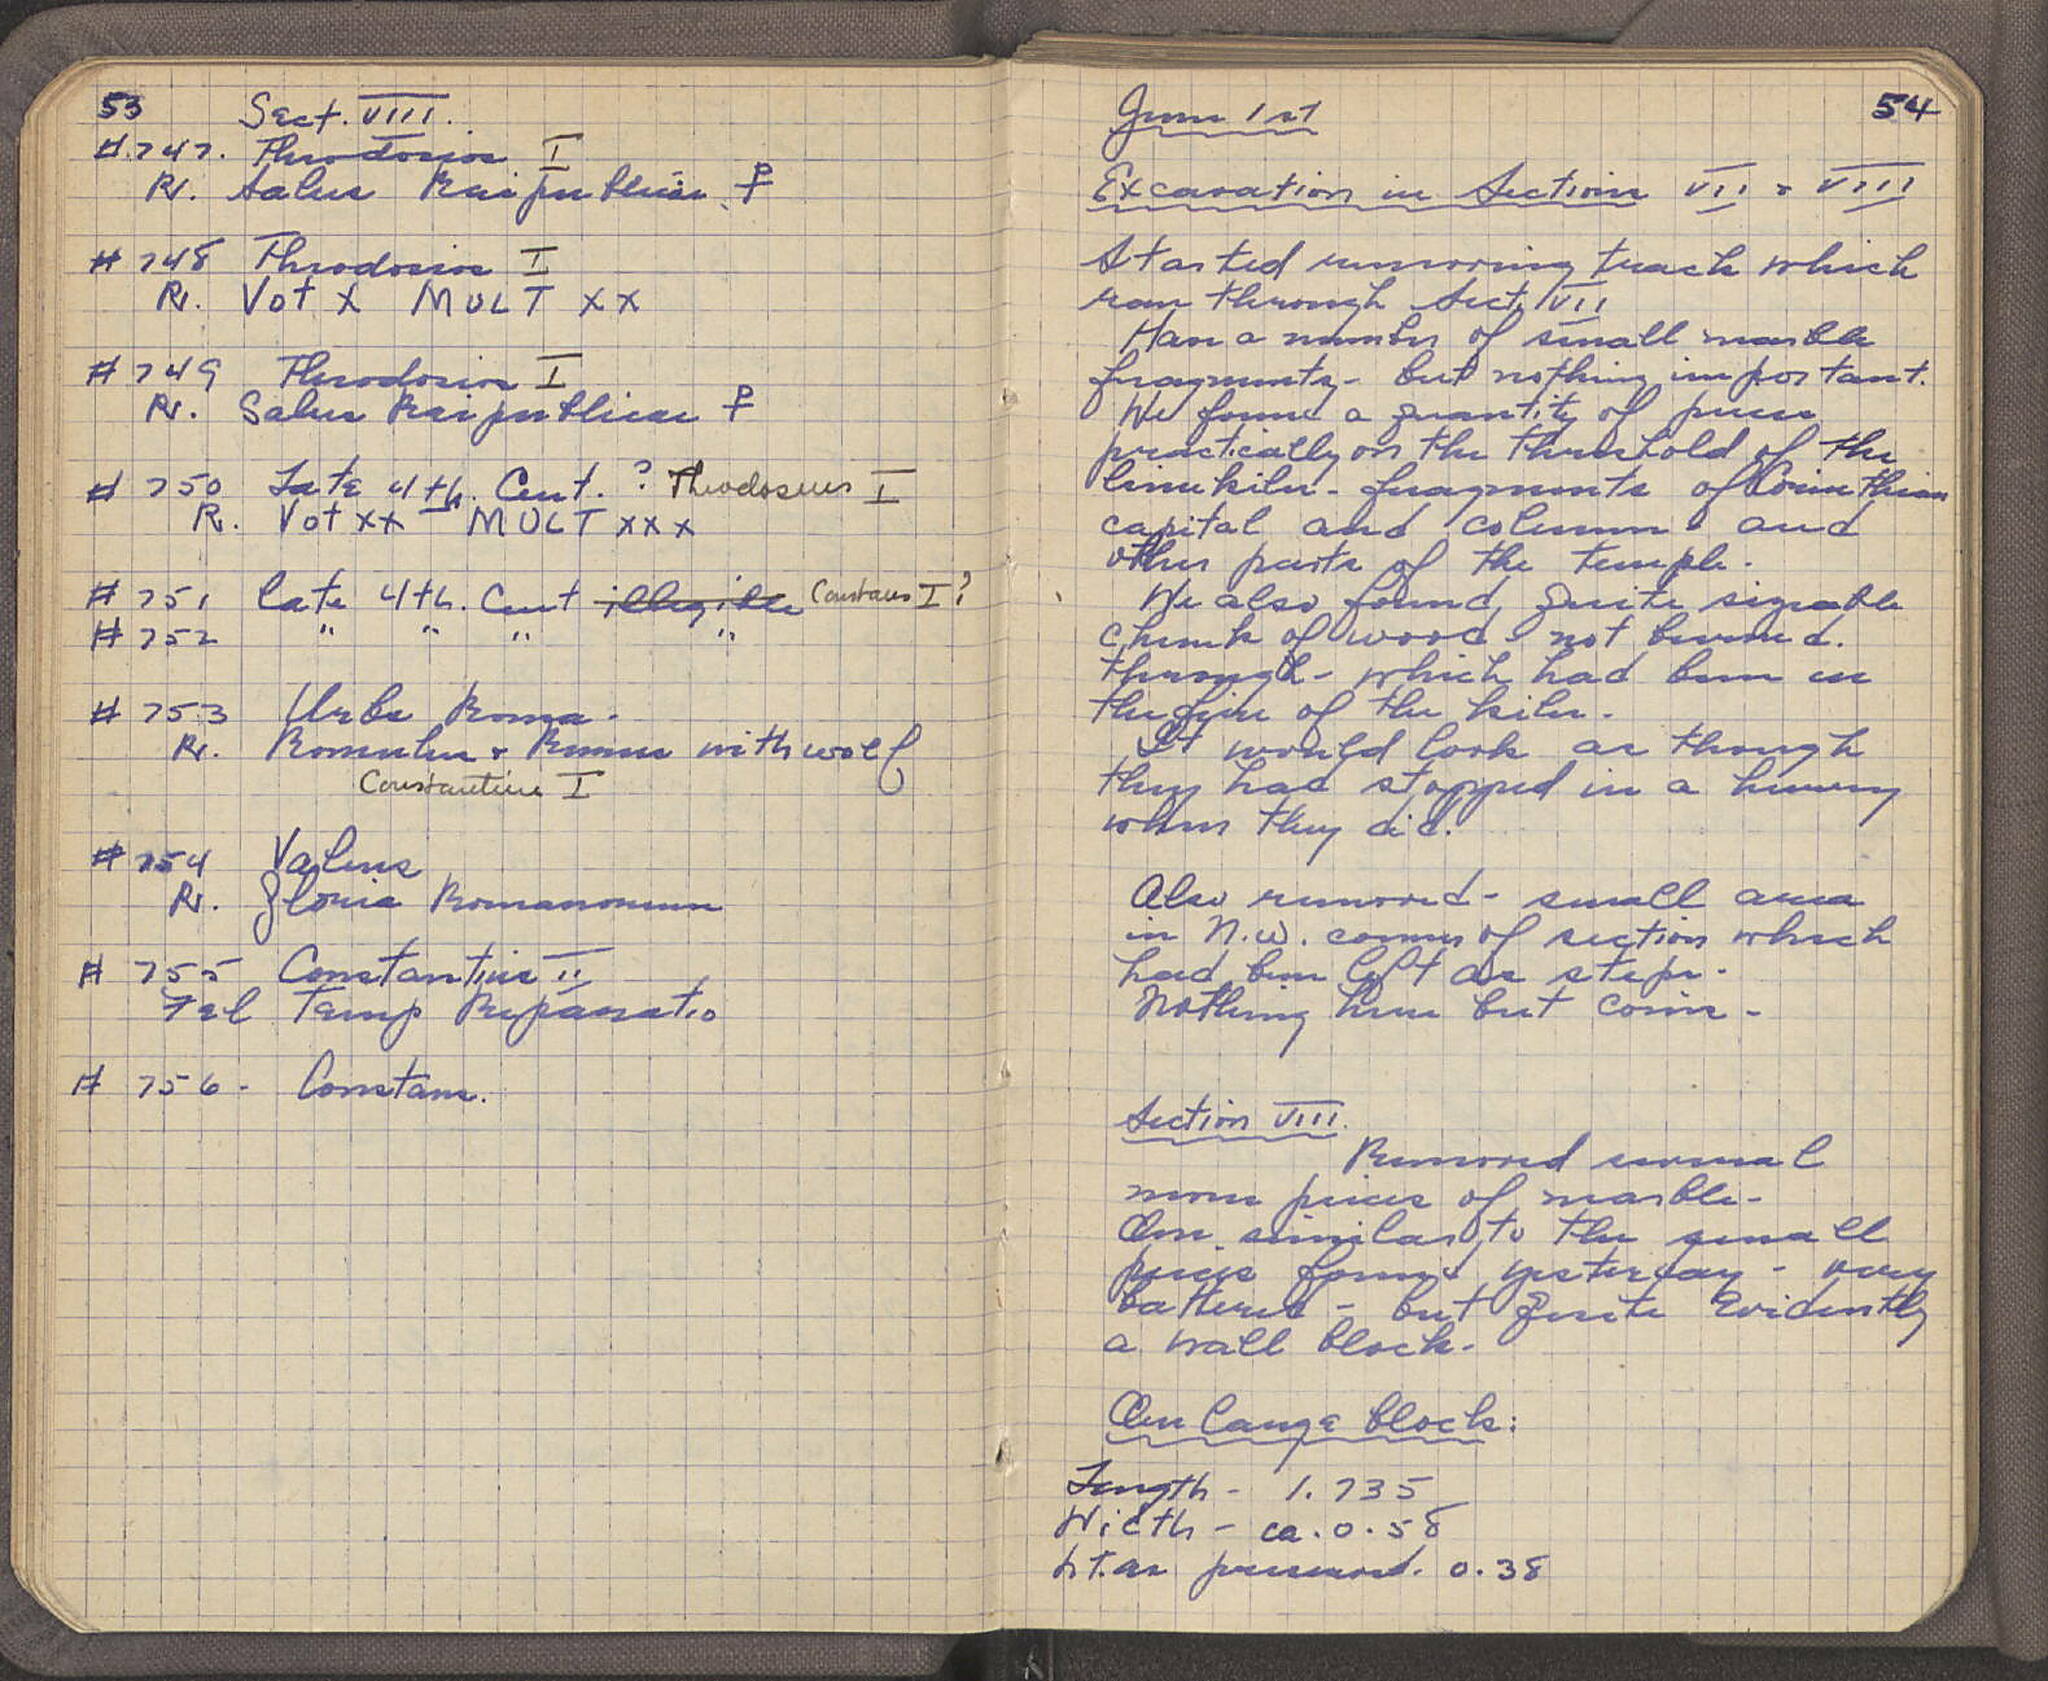 53
Sect. VIII.
#.747. Theodosius I
Rv. Salus Reipublicae ⳨
# 748 Theodosius I
Rv. Vot X MULT XX
# 749 Theodosius I
Rv. Salus Reipublicae ⳨
# 750 Late 4th. Cent. ? Theodosius I
R. Vot XX - MULT XXX
# 751 Late 4th. Cent illegible Constans I?
# 752 " " " "
# 753 Urbs Roma.
Rv. Romulus + Remus with wolf
Constantine I
# 754 Valens
Rv. Gloria Romanorum
# 755 Constantius II
Fel Temp Reparatio
# 756. Constans.
54
June 1st
Excavation in Section VII + VIII
Started removing track which
ran through Sect. VII
Have a number of small marble
fragments - but nothing important.
We found a quantity of pieces
practically on the threshold of the
limekiln - fragments of Corinthian
capital and column and
other parts of the temple.
We also found quite sizeable
chunk of wood not burned
through - which had been in
the fire of the kiln.
It would look as though
they had stopped in a hurry
when they did.
Also removed - small area
in N.W. corner of section which
had been left as steps.
Nothing here but coins -
Section VIII.
Removed several
more pieces of marble -
One similar to the small
pieces found yesterday - very
battered - but quite evidently
a wall block.
One large block:
Length - 1.735
Width - ca. 0.58
ht. as preserved. 0.38